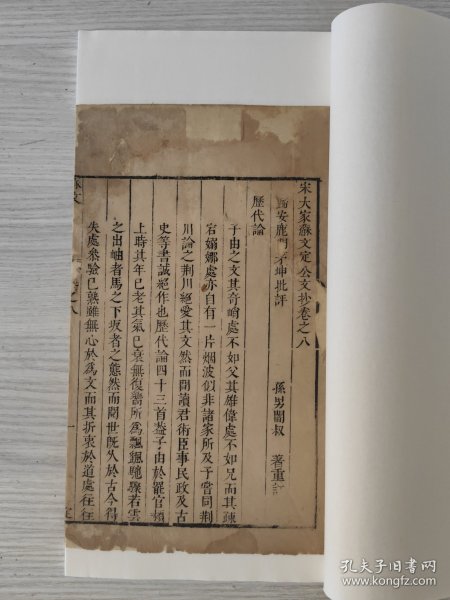 宋大家蘇文定公文抄卷之八
安鹿門茅坤批評
孫男闇叔 著重訂
歷代論
子由之文其奇峭處不如父其雄偉處不如兄而其疎
宕嫋娜處亦自有一片烟波似非諸家所及予嘗同荆
川論之荆川絕愛其文然而閒讀君術臣事民政及古
史等書誠絕作也歷代論四十三首葢子由於罷官潁
上時其年已老其氣已衰無復嚮所為飄飄馳驟若雲
之出岫者馬之下坂者之態然而閱世既久於古今得
失處參驗已熟雖無心於為文而其折衷於道處往往
蘇文
之八
一
孔夫子旧书网
www.kongfz.com